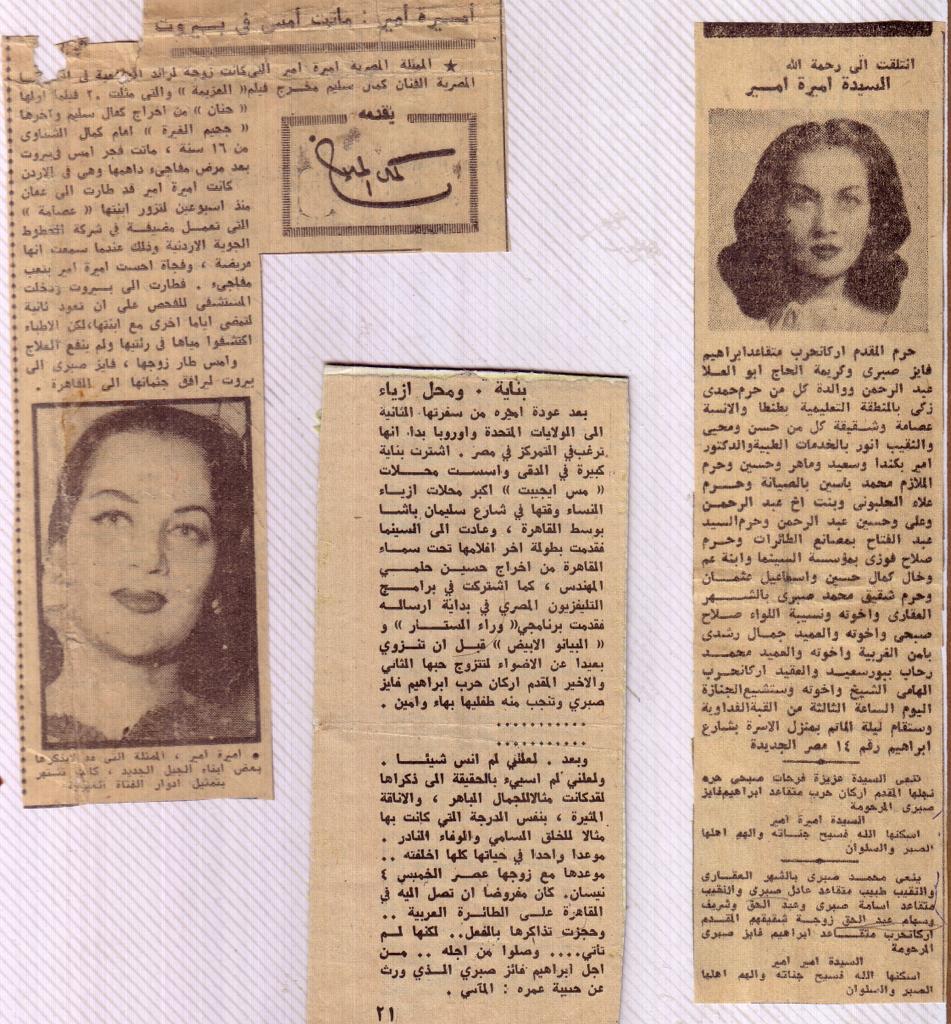 أميرة أمير : ماتت أمس فى بيروت
★ الممثلة المصرية اميرة امير التى كانت زوجة لرائد الواقعية فى السينما
المصرية الفنان كمال سليم مخرج فيلم « العزيمة » والتى مثلت ٢٠ فيلما اولها
« حنان » من اخراج كمال سليم وآخرها
« جحيم الغيرة » امام كمال الشناوى
من ١٦ سنة ، ماتت فجر امس فى بيروت
بعد مرض مفاجىء داهمها وهى فى الاردن
كانت اميرة امير قد طارت الى عمان
منذ اسبوعين لتزور ابنتها « عصامة »
التى تعمل مضيفة فى شركة الخطوط
الجوية الاردنية وذلك عندما سمعت انها
مريضة ، وفجأة احست اميرة امير بتعب
مفاجىء . فطارت الى بيروت ودخلت
المستشفى للفحص على ان تعود ثانية
لتمضى اياما اخرى مع ابنتها ، لكن الاطباء
اكتشفوا مياها فى رئتيها ولم ينفع العلاج
وامس طار زوجها ، فايز صبرى الى
بيروت ليرافق جثمانها الى القاهرة .
يقدمه
كمال الملاخ
● اميرة امير ، الممثلة التى قد لا يتذكرها
بعض ابناء الجيل الجديد ، كانت تشتهر
بتمثيل ادوار الفتاة
بناية . ومحل ازياء
بعد عودة اميره من سفرتها الثانية
الى الولايات المتحدة واوروبا بدا انها
ترغب في التمركز في مصر . اشترت بناية
كبيرة في الدقى واسست محلات
« مس ايجيبت » اكبر محلات ازياء
النساء وقتها في شارع سليمان باشا
بوسط القاهرة ، وعادت الى السينما
فقدمت بطولة اخر افلامها تحت سماء
القاهرة من اخراج حسين حلمي
المهندس ، كما اشتركت في برامج
التليفزيون المصري في بداية ارساله
فقدمت برنامجي « وراء الستار » و
« البيانو الابيض » قبل ان تنزوي
بعيدا عن الاضواء لتتزوج حبها الثاني
والاخير المقدم اركان حرب ابراهيم فايز
صبري وتنجب منه طفليها بهاء وامين .
...........
...........
وبعد . لعلني لم انس شيئا .
ولعلني لم اسيء بالحقيقة الى ذكراها
لقد كانت مثالا للجمال الباهر ، والاناقة
المثيرة ، بنفس الدرجة التي كانت بها
مثالا للخلق السامي والوفاء النادر .
موعدا واحدا في حياتها كلها اخلفته ..
موعدها مع زوجها عصر الخميس ٤
نيسان. كان مفروضا ان تصل اليه في
القاهرة على الطائرة العربية ..
وحجزت تذاكرها بالفعل.. لكنها لم
تأتي.... وصلوا من اجله .. من
اجل ابراهيم فائز صبري الذي ورث
عن حبيبة عمره : المآسي .
٢١
انتقلت الى رحمة الله
السيدة اميرة امير
حرم المقدم اركانحرب متقاعد ابراهيم
فايز صبرى وكريمة الحاج ابو العلا
عبد الرحمن ووالدة كل من حرم حمدى
زكى بالمنطقة التعليمية بطنطا والانسة
عصامة وشقيقة كل من حسن ومحيى
والنقيب انور بالخدمات الطبية والدكتور
امير بكندا وسعيد وماهر وحسين وحرم
الملازم محمد ياسين بالصيانة وحرم
علاء الحلبونى وبنت اخ عبد الرحمن
وعلى وحسين عبد الرحمن وحرم السيد
عبد الفتاح بمصانع الطائرات وحرم
صلاح فوزى بمؤسسة السينما وابنة عم
وخال كمال حسين واسماعيل عثمان
وحرم شقيق محمد صبرى بالشهر
العقارى واخوته ونسيبة اللواء صلاح
صبحى واخوته والعميد جمال رشدى
بامن الغربية واخوته والعميد محمد
رحاب ببورسعيد والعقيد اركانحرب
الهامى الشيخ واخوته وستشيع الجنازة
اليوم الساعة الثالثة من القبة الفداوية
وستقام ليلة الماتم بمنزل الاسرة بشارع
ابراهيم رقم ١٤ مصر الجديدة
تنعى السيدة عزيزة فرحات صبحى حرم
نجلها المقدم اركان حرب متقاعد ابراهيم فايز
صبرى المرحومة
السيدة اميرة امير
اسكنها الله فسيح جناته والهم اهلها
الصبر والسلوان
ينعى محمد صبرى بالشهر العقارى
والنقيب طبيب متقاعد عادل صبرى والنقيب
متقاعد اسامة صبرى وعبد الحق وشريف
وسهام عبد الحق زوجة شقيقهم المقدم
اركانحرب متقاعد ابراهيم فايز صبرى
المرحومة
السيدة امير امير
اسكنها الله فسيح جناته والهم اهلها
الصبر والسلوان